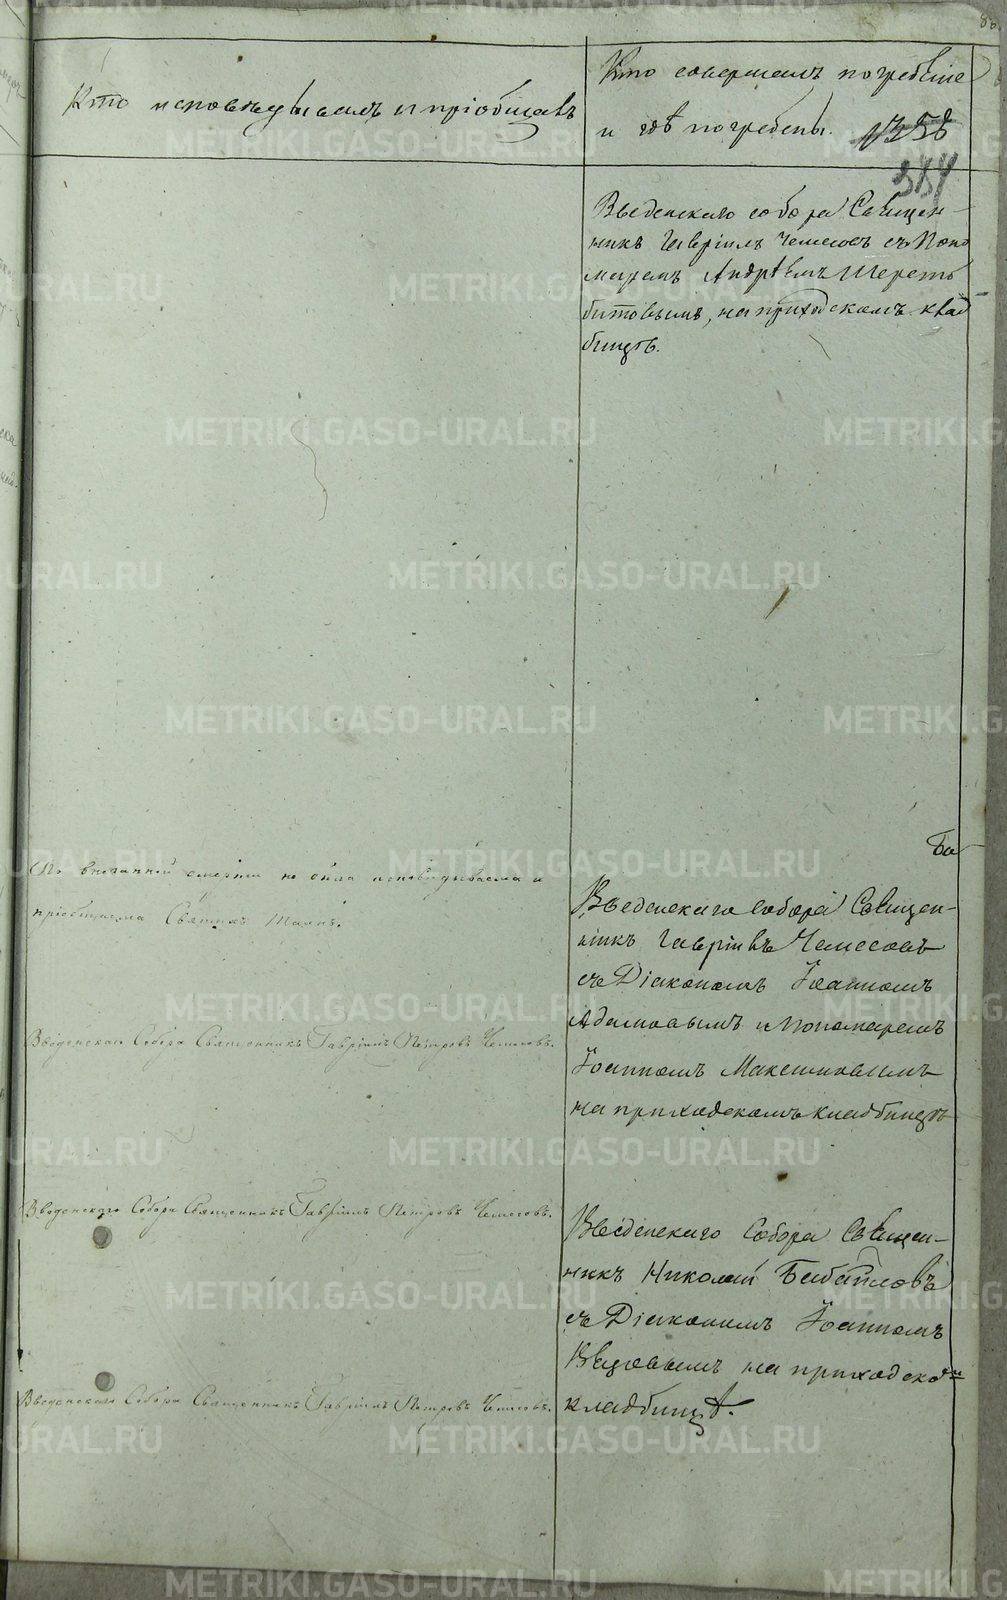 Кто исповѣдывалъ и пріобщалъ
Кто совершалъ погребеніе
и гдѣ погребены.
334
Введенскаго собора Священ-
никъ Гавріилъ Чемесовъ съ Поно
маремъ Андреемъ
на приходскомъ клад
бищѣ.
По внезапной смерти не была исповѣдываема и
пріобщаема Святыхъ Таинъ.
Введенскаго Собора Священ-
никъ Гавріилъ Чемесовъ
съ Діакономъ Іоанномъ
Адамовымъ и Пономаремъ
Іоанномъ Максимовымъ
на приходскомъ кладбищѣ
Введенскаго Собора Священникъ Гавріилъ Петровъ Чемесовъ.
Введенскаго Собора Священникъ Гавріилъ Петровъ Чемесовъ.
Введенскаго Собора Священ-
никъ Николай
съ Діакономъ Іоанномъ
на приходско
кладбищѣ.
Введенскаго Собора Священникъ Гавріилъ Петровъ Чемесовъ.
METRIKI.GASO-URAL.RU